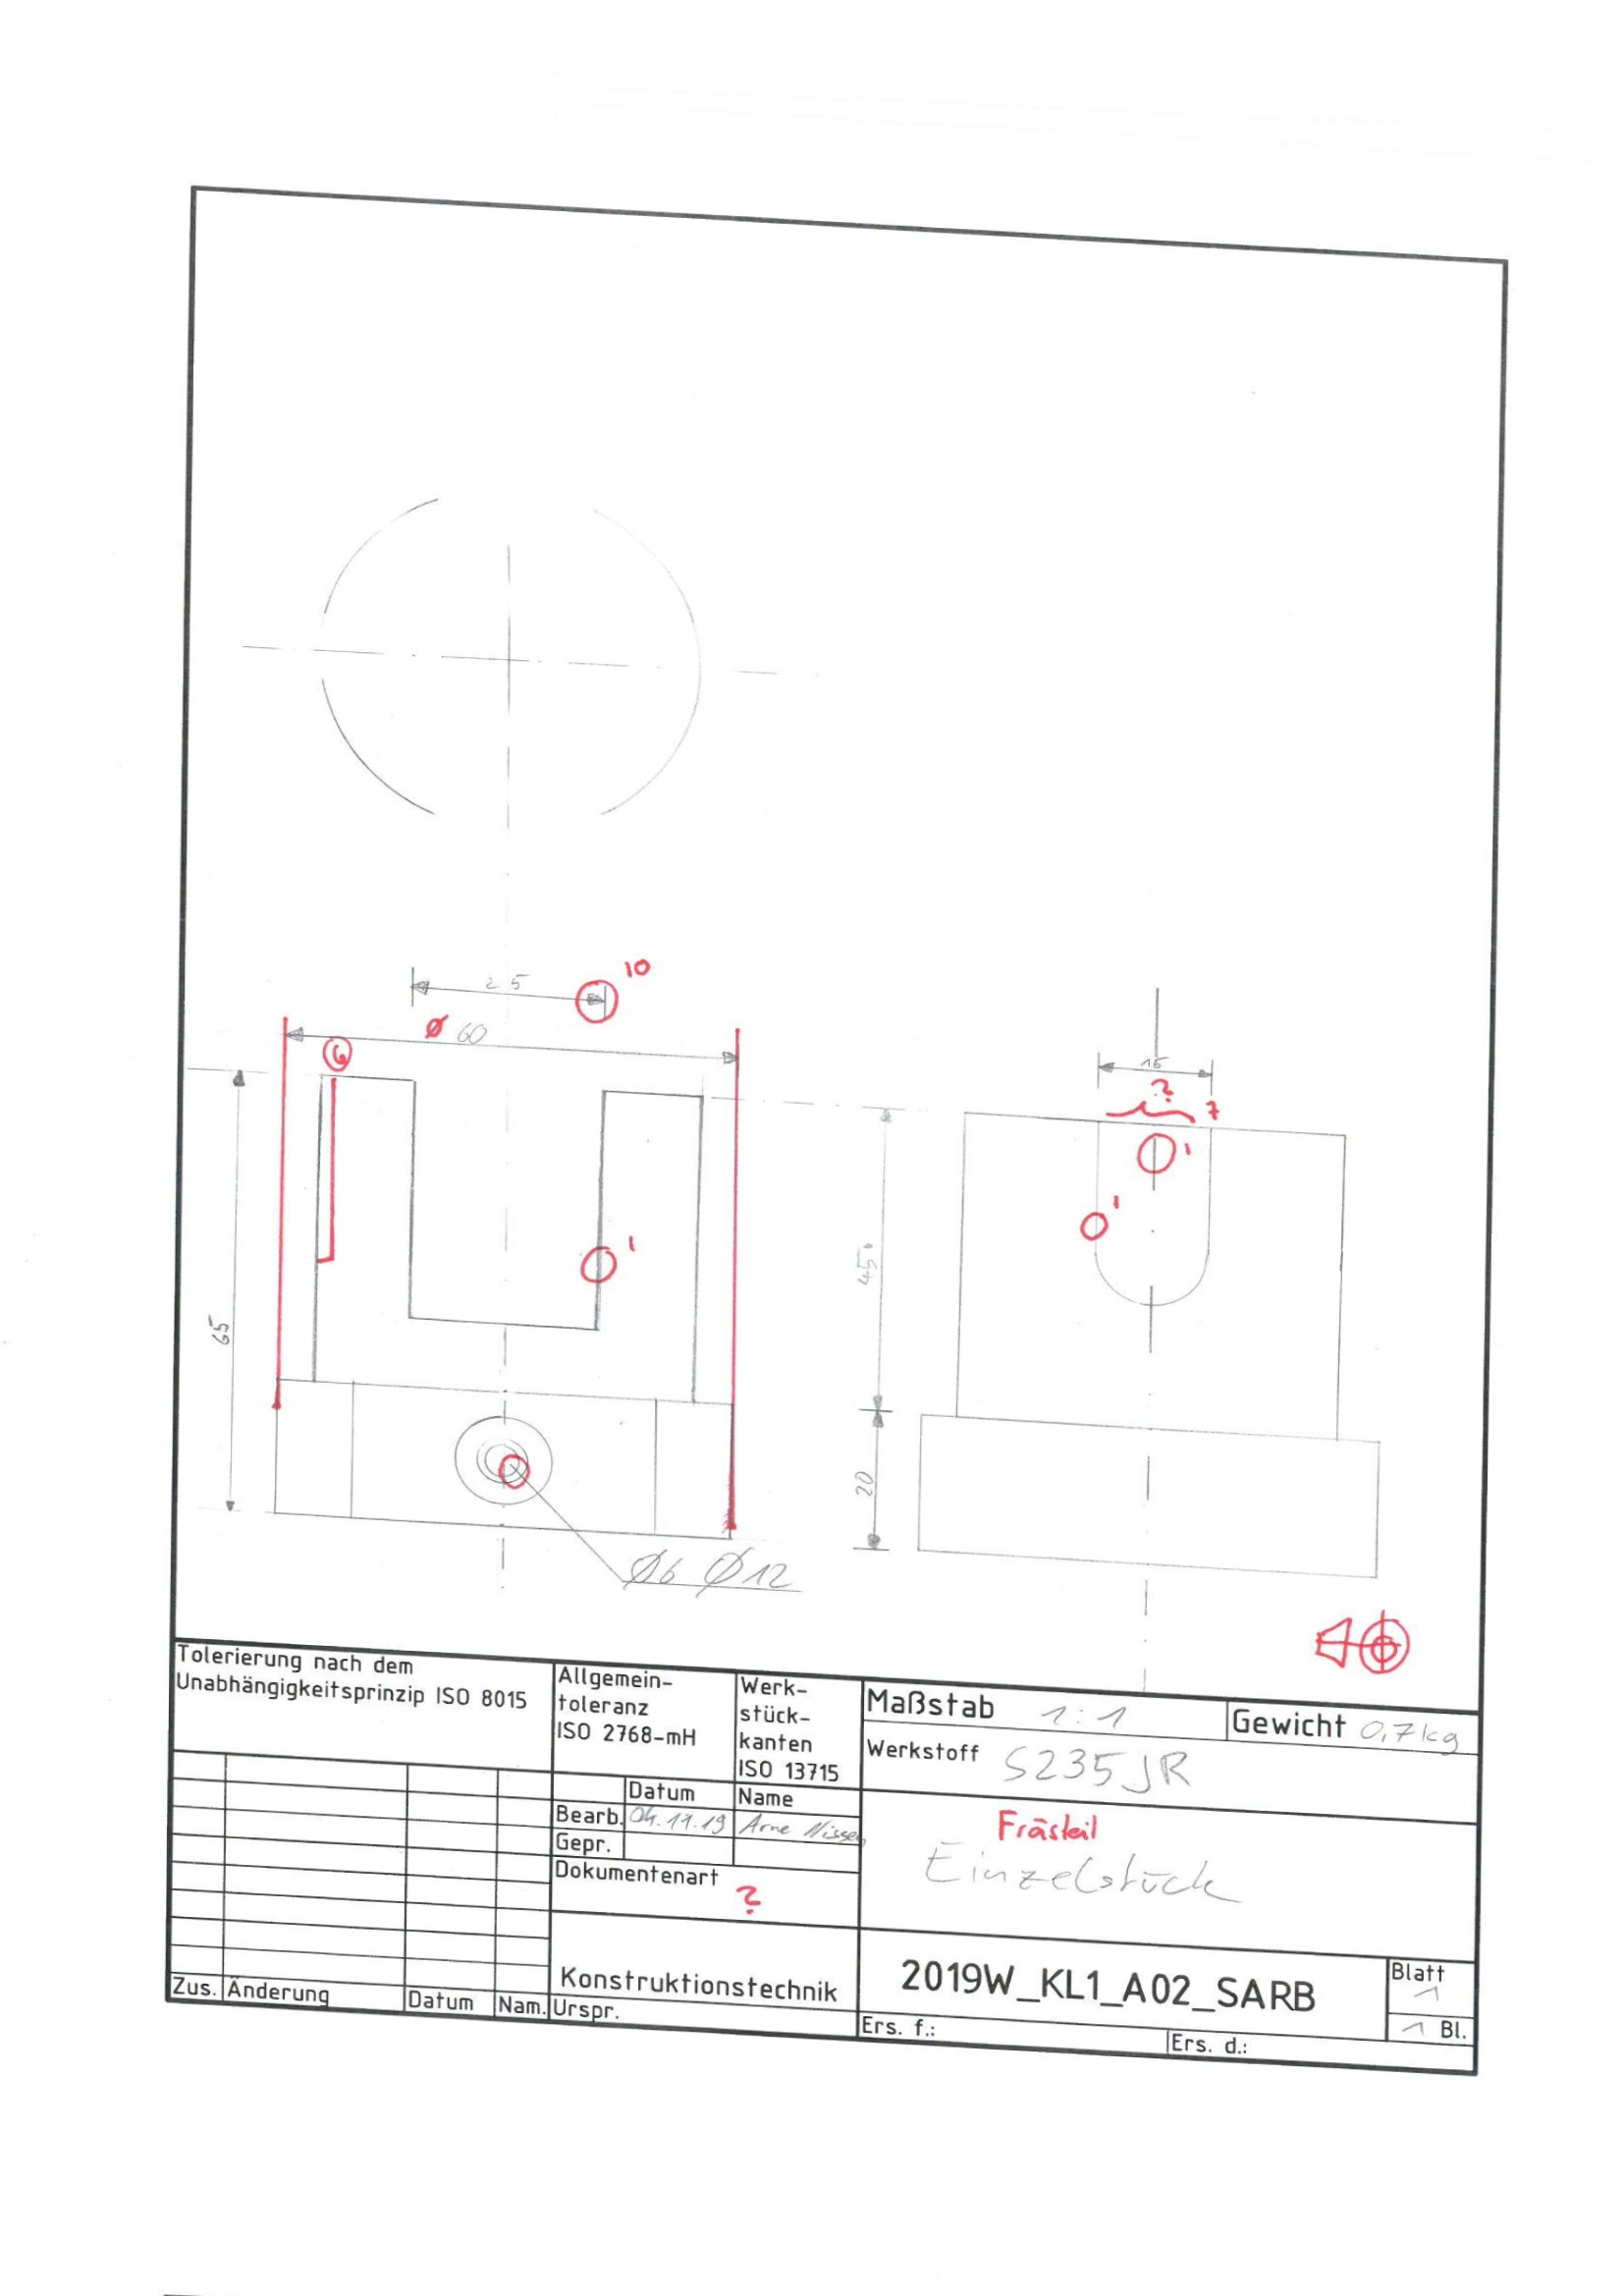 10
25
ø 60
6
15
?
7
1
1
1
45
65
20
Ø6 Ø12
Tolerierung nach dem
Unabhängigkeitsprinzip ISO 8015
Allgemein-
toleranz
ISO 2768-mH
Werk-
stück-
kanten
ISO 13715
Maßstab 1:1
Gewicht 0,7kg
Werkstoff S235JR
Datum
Name
Bearb. 04.11.19 Arne Nissen
Gepr.
Dokumentenart
?
Frästeil
Einzelstück
Konstruktionstechnik
2019W_KL1_A02_SARB
Blatt
1
1 Bl.
Zus. Änderung Datum Nam. Urspr.
Ers. f.:
Ers. d.: